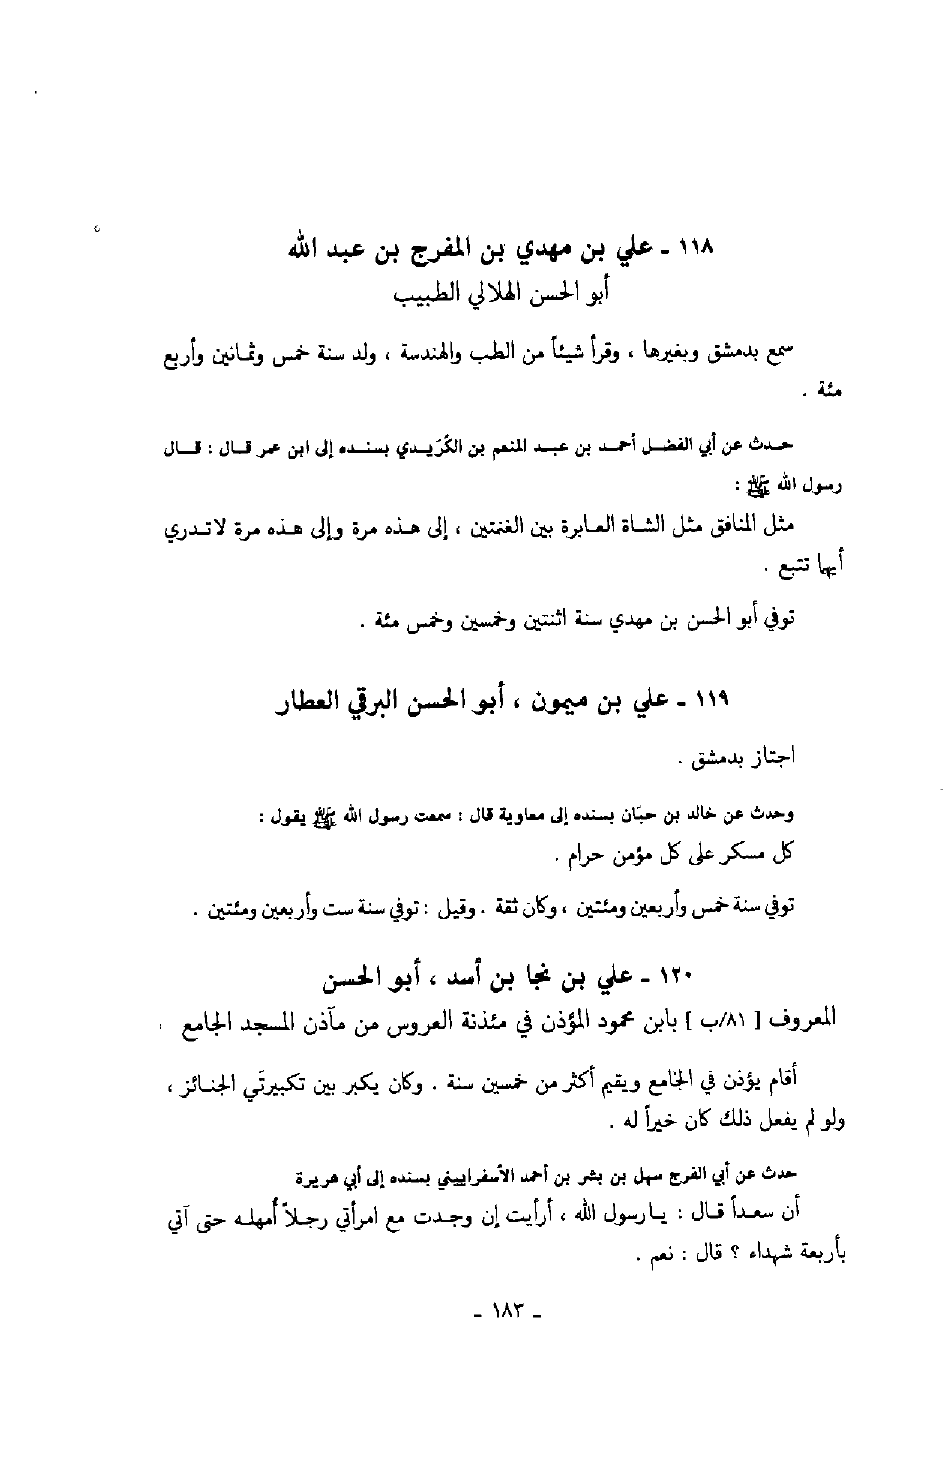 ١١٨ - علي بن مهدي بن المفرج بن عبد الله
أبو الحسن الهلالي الطبيب
سمع بدمشق وبغيرها ، وقرأ شيئاً من الطب والهندسة ، ولد سنة خمس وثمانين وأربع
مئة .
حدث عن أبي الفضل أحمد بن عبد المنعم بن الكُرَيدي بسنده إلى ابن عمر قال : قال
رسول الله ﷺ :
مثل المنافق مثل الشاة العابرة بين الغنمين ، إلى هذه مرة وإلى هذه مرة لاتدري
أيها تتبع .
توفي أبو الحسن بن مهدي سنة اثنتين وخمسين وخمس مئة .
١١٩ - علي بن ميمون ، أبو الحسن البرقي العطار
اجتاز بدمشق .
وحدث عن خالد بن حيّان بسنده إلى معاوية قال : سمعت رسول الله ﷺ يقول :
كل مسكر على كل مؤمن حرام .
توفي سنة خمس وأربعين ومئتين ، وكان ثقة . وقيل : توفي سنة ست وأربعين ومئتين .
١٢٠ - علي بن نجا بن أسد ، أبو الحسن
المعروف [ ٨١/ب ] بابن محمود المؤذن في مئذنة العروس من مآذن المسجد الجامع
أقام يؤذن في الجامع ويقيم أكثر من خمسين سنة . وكان يكبر بين تكبيرتَي الجنائز ،
ولو لم يفعل ذلك كان خيراً له .
حدث عن أبي الفرج سهل بن بشر بن أحمد الأسفراييني بسنده إلى أبي هريرة
أن سعداً قال : يارسول الله ، أرأيت إن وجدت مع امرأتي رجلاً أمهله حتى آتي
بأربعة شهداء ؟ قال : نعم .
- ١٨٣ -